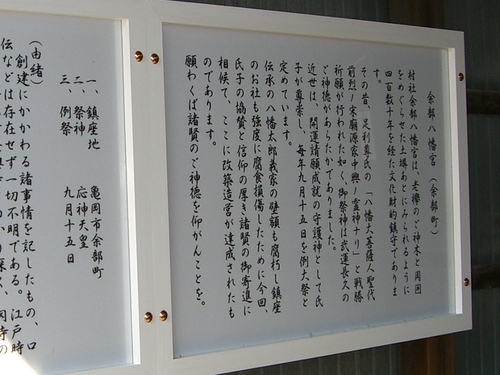 余部八幡宮（余部町）
村社余部八幡宮は、老欅のご神木と周囲
をめぐらせた土塀あとにみられるように
四百数十年を経た文化財的鎮守でありま
す。
その昔、足利尊氏の「八幡大菩薩人聖代
前烈ノ宗廟源家中興ノ霊神ナリ」と戦勝
祈願が行われた如く、御祭神は武運長久の
ご神徳があらたかでありました。
近世は、開運請願成就の守護神として氏
子が尊崇し、毎年九月十五日を例大祭と
定めています。
伝承の八幡太郎義家の壁額も腐朽し鎮座
のお社も強度に腐食損傷したために今回、
氏子の協賛と信仰の厚き諸賢の御寄進に
相俟て、ここに改築造営が達成されたも
のであります。
願わくば諸賢のご神徳を仰がんことを。
一、鎮座地　亀岡市余部町
二、祭神　応神天皇
三、例祭　九月十五日
（由緒）
創建にかかわる諸事情を記したもの、口
伝などは存在せず一切不明である。江戸時